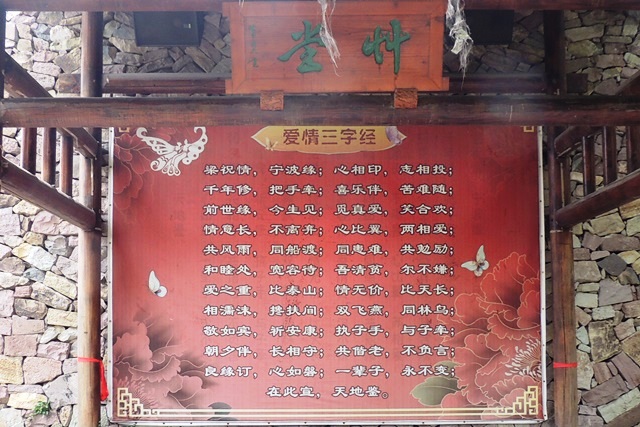 艸堂
爱情三字经
梁祝情，宁波缘；心相印，志相投；
千年修，把手牵；喜乐伴，苦难随；
前世缘，今生见；觅真爱，芙合欢；
情意长，不离弃；心比翼，两相爱；
共风雨，同船渡；同患难，共勉励；
和睦处，宽容待；吾清贫，尔不嫌；
爱之重，比泰山；情无价，比天长；
相濡沫，搀扶间；双飞燕，同林鸟；
敬如宾，祈安康；执子手，与子牵；
朝夕伴，长相守；共偕老，不负言；
良缘订，心如磐；一辈子，永不变；
在此宣，天地鉴。